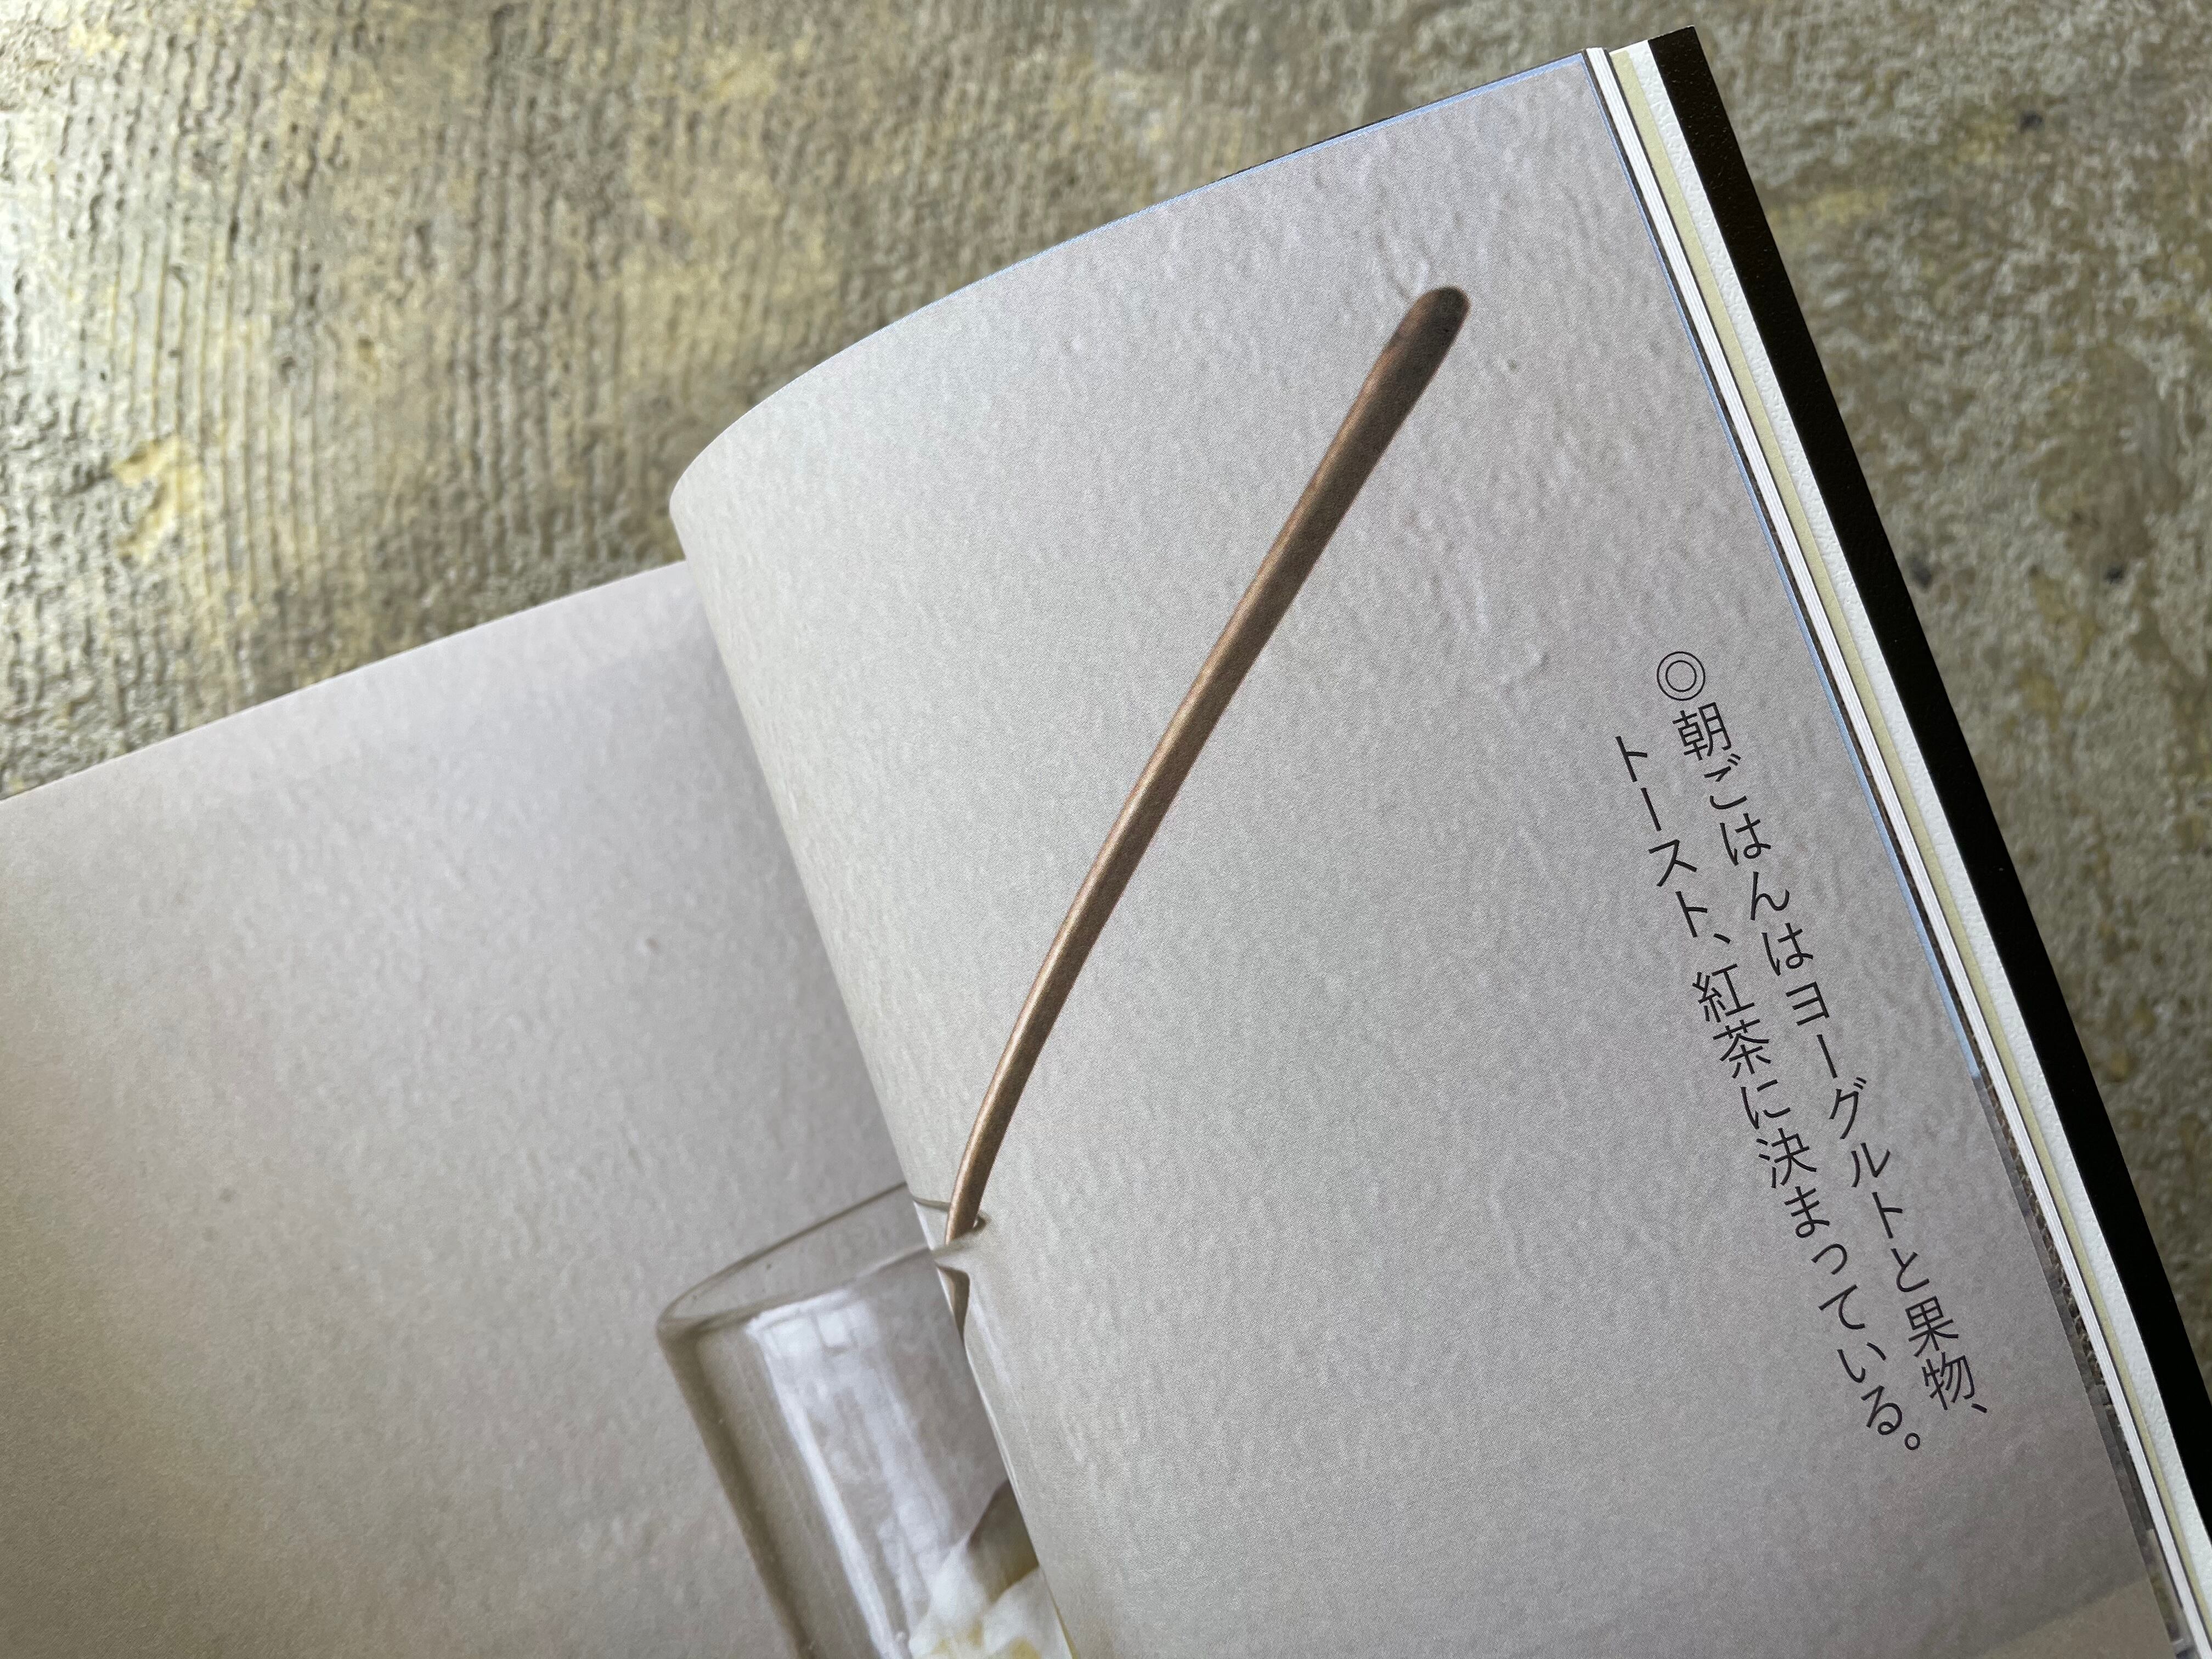 ◎朝ごはんはヨーグルトと果物、
トースト、紅茶に決まっている。